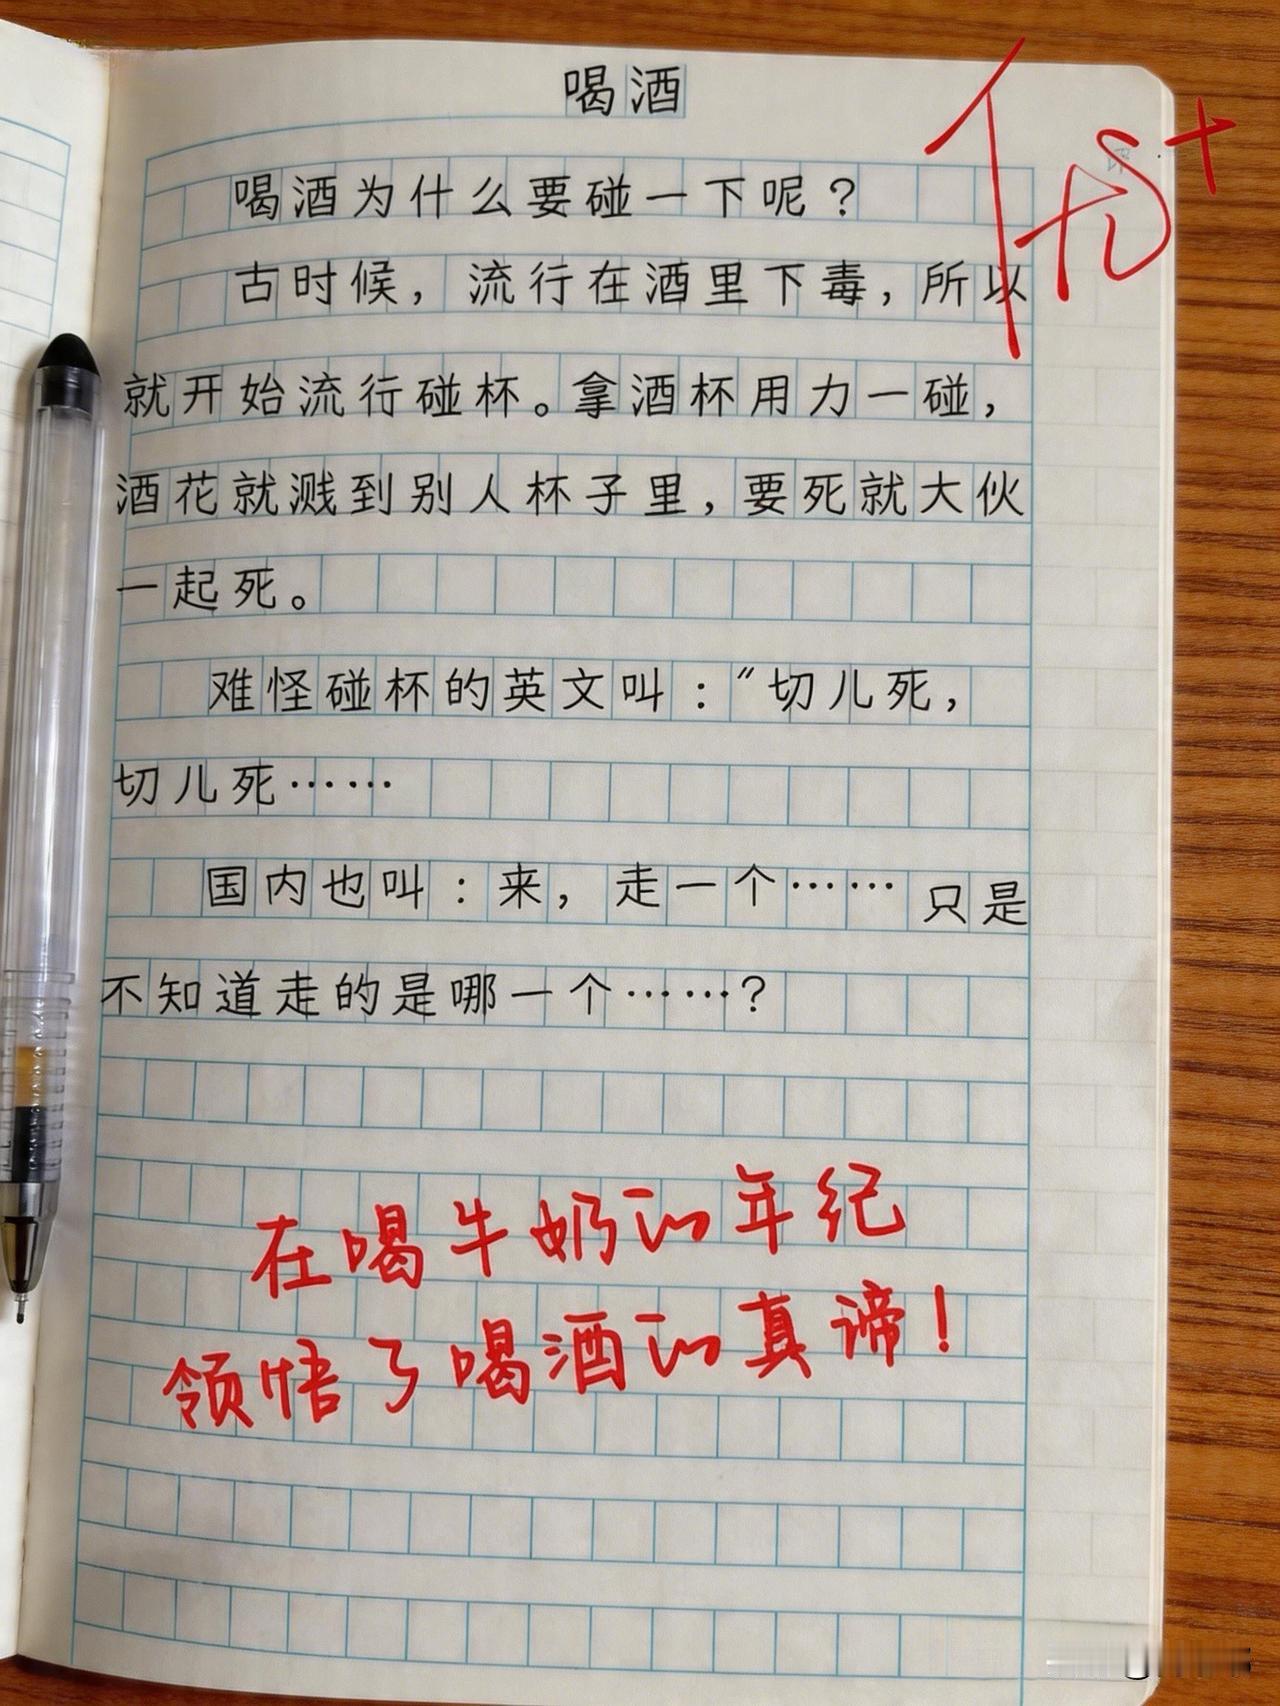 喝酒
喝酒为什么要碰一下呢？
古时候，流行在酒里下毒，所以
就开始流行碰杯。拿酒杯用力一碰，
酒花就溅到别人杯子里，要死就大伙
一起死。
难怪碰杯的英文叫：“切儿死，
切儿死……
国内也叫：来，走一个……只是
不知道走的是哪一个……？
优+
在喝牛奶的年纪
领悟了喝酒的真谛！